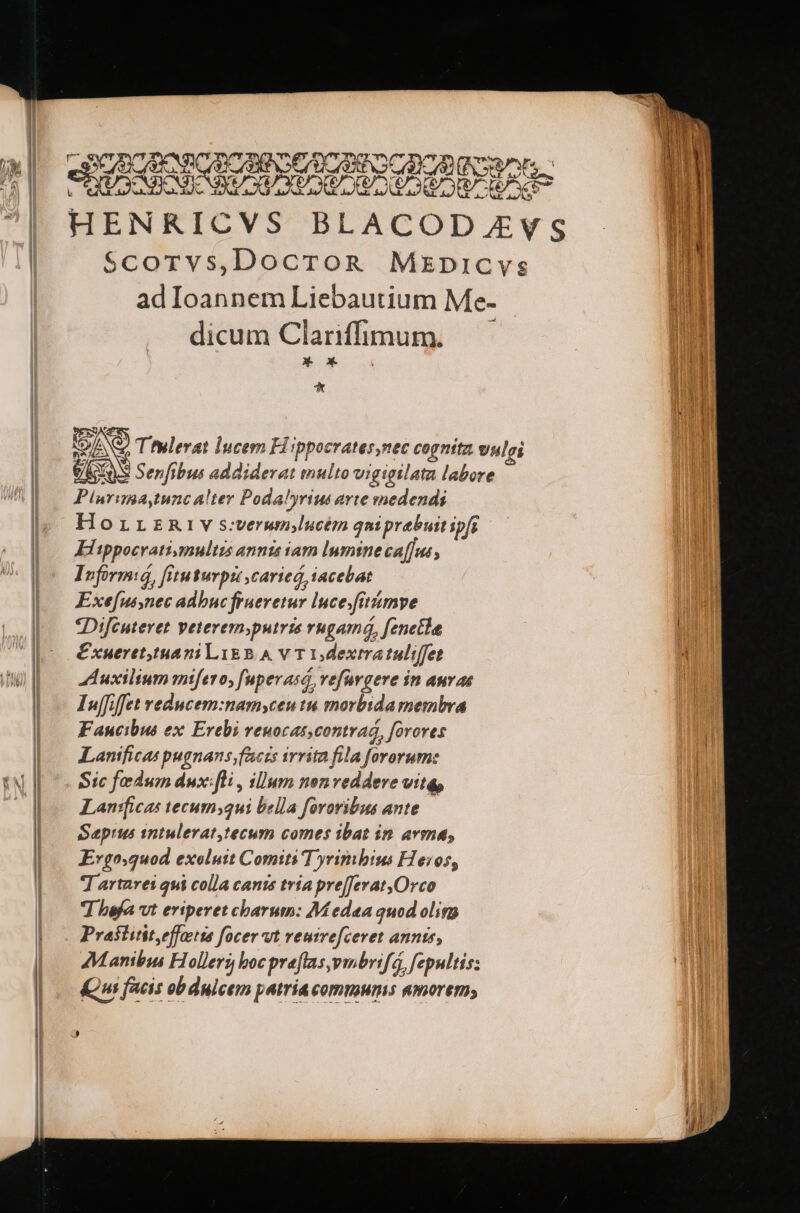 HENRICVS BLACODÆVS
SCOTVS, DOCTOR MEDICVS
ad Ioannem Liebautium Me-
dicum Clariſſimum.
* *
*
ATtulerat lucem Hippocrates, nec cognita vulgi
Senſibus addiderat multo vigigilata labore
Plurima, tunc alter Podalyrius arte medendi
HOLLERIVS: verum, lucẽm qui prębuit ipſi
Hippocrati, multis annis iam lumine caſſus,
Informiq́, ſitu turpis, carieq́, iacebat
Exeſus, nec adhuc frueretur luce, ſitũmve
Diſcuteret veterem, putris rugamq́, ſenectæ
Exueret, tua ni LIEBAVTI, dextra tuliſſet
Auxilium miſero, ſuperasq́, reſurgere in auras
Iuſſiſſet reducem: nam, ceu tu morbida membra
Faucibus ex Erebi reuocas, contraq́, ſorores
Lanificas pugnans, facis irrita fila ſororum:
Sic fœdum duxiſti, illum non reddere vitę,
Lanificas tecum, qui bella ſororibus ante
Sæpius intulerat, tecum comes ibat in arma,
Ergo, quod exoluit Comiti Tyrinthius Heros,
Tartarei qui colla canis tria preſſerat, Orco
Theſea vt eriperet charum: Medæa quod olim
Præſtitit, effœtis ſocer vt reuireſceret annis,
Manibus Hollerij hoc præſtas, vmbriſq́, ſepultis:
Qui facis ob dulcem patriæ communis amorem,